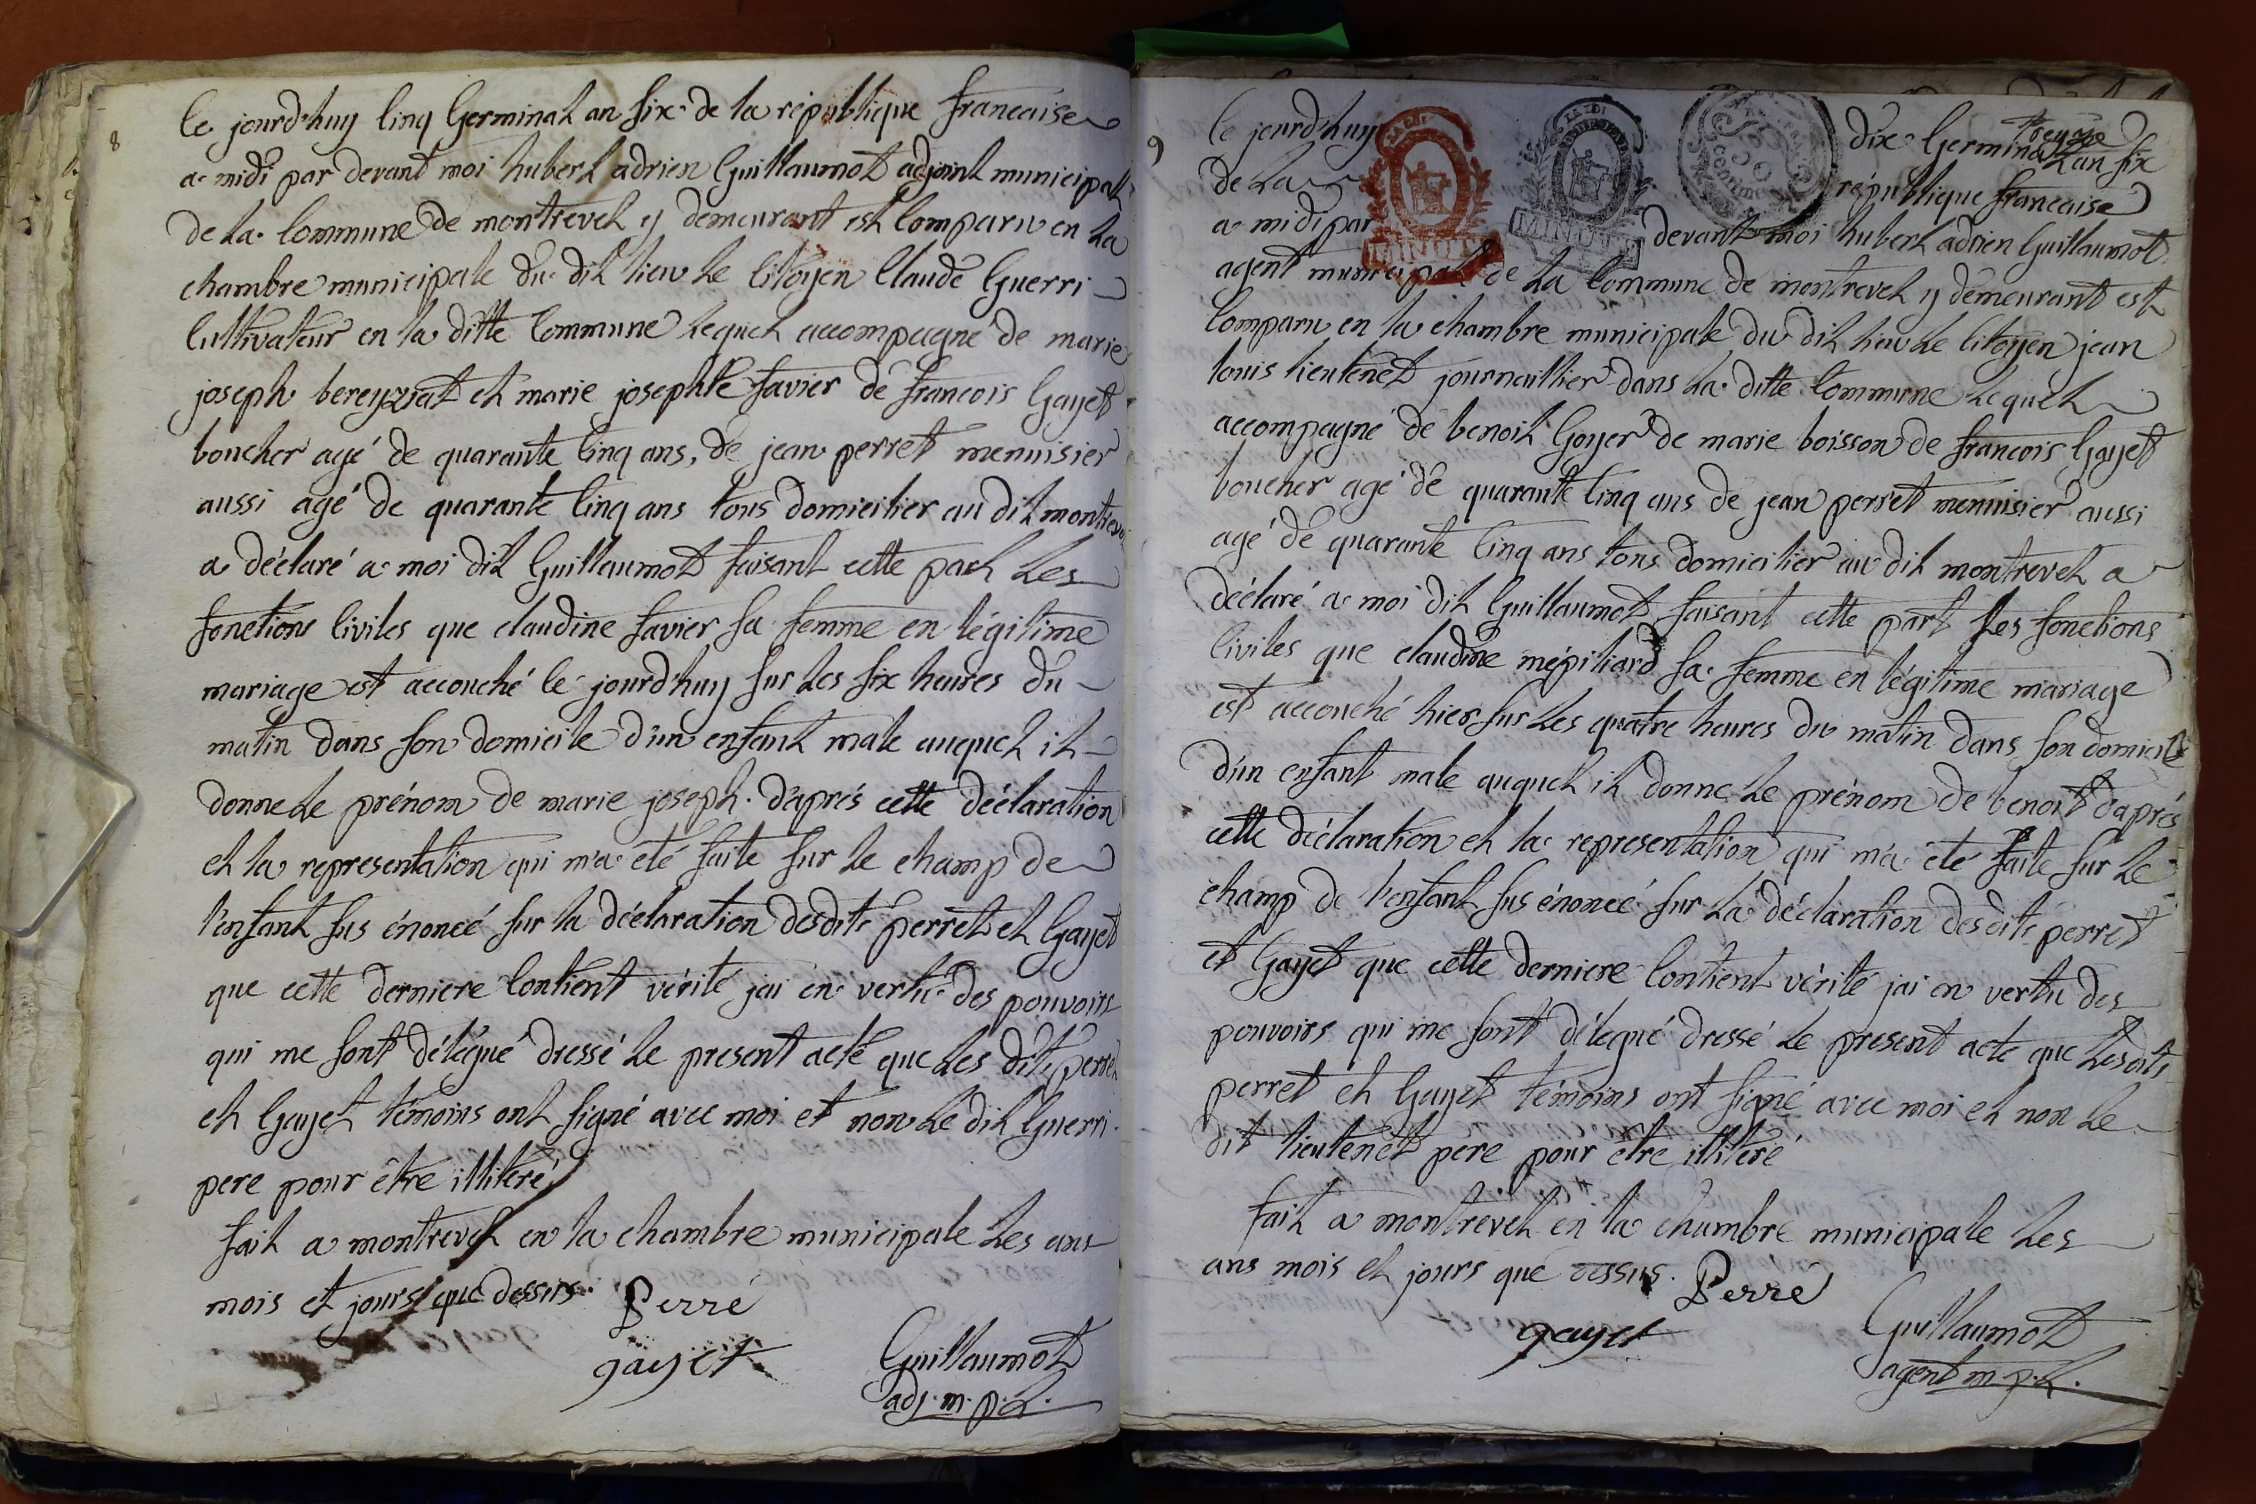 8
le jourd'huy Cinq Germinal an six de la république francaise
a midi par devant moi hubert adrien Guillaumot adjoint municipal
de la Commune de montrevel y demeurant est Comparu en la
chambre municipale du dit lieu le Citoyen Claude Guerri
Cultivateur en la ditte Commune lequel accompagné de marie
joseph bereyziat et marie josephte favier de francois Gayet
boucher agé de quarante Cinq ans, de jean perret menuisier
aussi agé de quarante Cinq ans tous domicilier au dit montrevel
a déclaré a moi dit Guillaumot faisant cette part les
fonctions Civiles que claudine favier sa femme en légitime
mariage est accouché le jourd'huy sur les six heures du
matin dans son domicile d'un enfant male auquel il
donne le prénom de marie joseph. d'aprés cette déclaration
et la representation qui m'a été faite sur le champ de
l'enfant sus énoncé sur la déclaration desdits perret et Gayet
que cette derniere Contient vérité jai en vertu des pouvoirs
qui me sont délégué dressé le present acte que les dits perret
et Gayet témoins ont signé avec moi et non le dit Guerri
pere pour être illiteré
fait a montrevel en la chambre municipale les ans
mois et jours que dessus. Perré
gayet Guillaumot
adj. m. p. l.
9
treize
le jourd'huy dix Germinal an six
de la république francaise
a midi par devant moi hubert adrien Guillaumot
agent municipal de la Commune de montrevel y demeurant est
Comparu en la chambre municipale du dit lieu le Citoyen jean
louis lieutenet journaillier dans la ditte Commune lequel
accompagné de benoit Goyer de marie boisson de francois Gayet
boucher agé de quarante Cinq ans de jean perret menuisier aussi
agé de quarante Cinq ans tous domicilier au dit montrevel a
déclaré a moi dit Guillaumot faisant cette part les fonctions
Civiles que claudine mépiliard sa femme en légitime mariage
est accouché hier sur les quatre heures du matin dans son domicile
d'un enfant male auquel il donne le prénom de benoit d'aprés
cette déclaration et la representation qui m'a été faite sur le
champ de l'enfant sus énoncé sur la déclaration desdits perret
et Gayet que cette derniere Contient vérité jai en vertu des
pouvoirs qui me sont délégué dressé le present acte que lesdits
perret et Gayet témoins ont signé avec moi et non le
dit lieutenet pére pour être illiteré
fait a montrevel en la chambre municipale les
ans mois et jours que dessus. Perré
gayet Guillaumot
agent m. p. l.
MINUTE
MINUTE